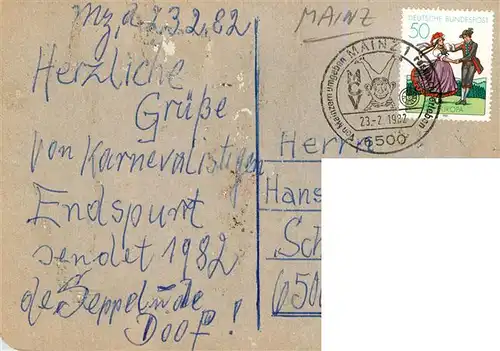 Mz, d. 23.2.82
Herzliche
Grüße
Von Karnevalistigen
Endspurt
sendet 1982
de Seppel u de
Doof!
MAINZ
DEUTSCHE BUNDESPOST
50
EUROPA
MAINZ 1
MCV
23.-2.1982
6500
Herrn
Hans
Sch
650